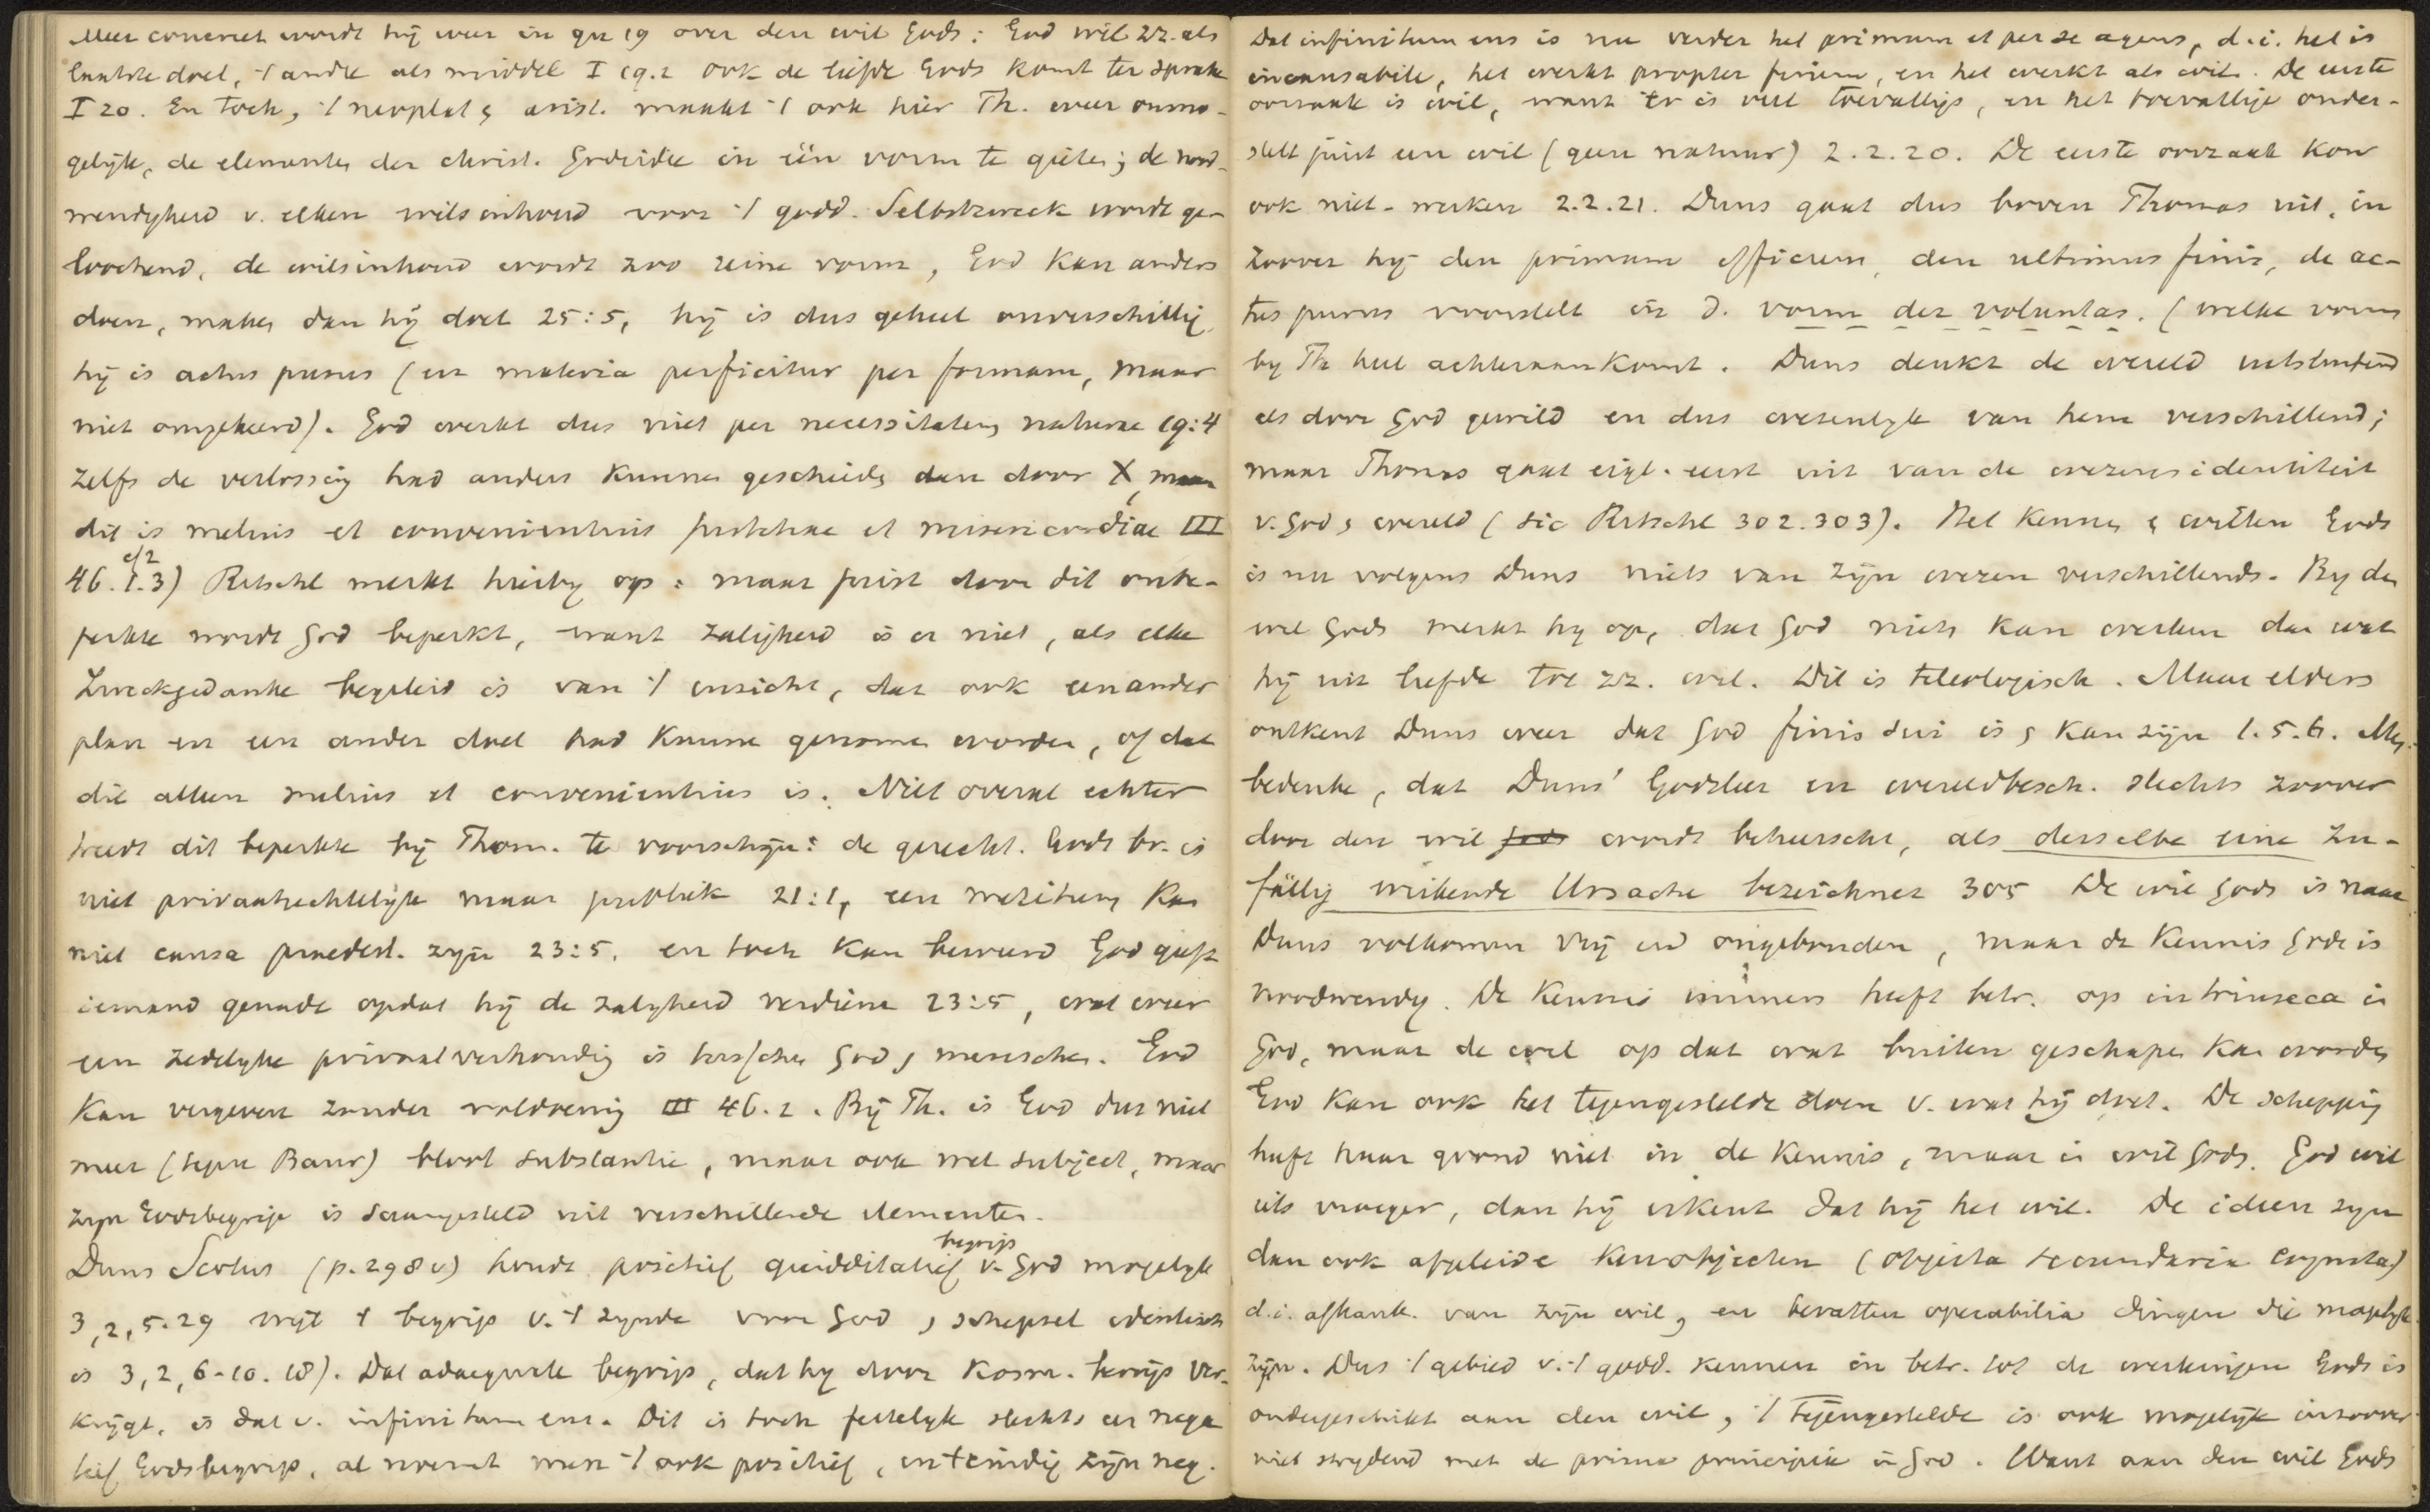 Meer concreet wordt hij weer in qu 19 over den wil Gods: God wil zz. als
laatste doel, 't andre als middel I 19.2 ook de liefde Gods komt ter sprake
I 20. En toch, 't neoplat & arist. maakt 't ook hier Th. weer onmo-
gelijk, de elementen der christ. Godsidee in één vorm te gieten; de nood-
wendigheid v. elken wilsinhoud voor 't godd. Selbstzweck wordt ge-
loochend, de wilsinhoud wordt zoo reine vorm, God kan anders
doen, maken dan hij doet 25:5, hij is dus geheel onverschillig,
hij is actus purus (en materia perficitur per formam, maar
niet omgekeerd). God werkt dus niet per necessitatem naturae 19:4
zelfs de verlossing had anders kunnen geschieden dan door X, maar
dit is melius et convenientius justitiae et misericordiae III
46. 1.3) Ritschl merkt hierbij op: maar juist door dit onbe-
perkte wordt God beperkt, want zaligheid is er niet, als elke
Zweckgedanke begeleid is van 't inzicht, dat ook een ander
plan en een ander doel had kunnen genomen worden, of dat
dit alleen melius et convenientius is. Niet overal echter
treedt dit beperkte bij Thom. te voorschijn: de gerecht. Gods bv. is
niet privaatrechtelijk maar publiek 21:1, een meritum kan
niet causa praedest. zijn 23:5, en toch kan beweerd God geeft
iemand genade opdat hij de zaligheid verdiene 23:5, wat weer
een zedelijke privaatverhouding is tusschen God & menschen. God
kan vergeven zonder voldoening III 46.2. Bij Th. is God dus niet
meer (tegen Baur) bloot substantie, maar ook wel subject, maar
zijn Godsbegrip is saamgesteld uit verschillende elementen.
Duns Scotus (p. 298 v) houdt positief quidditatief begrip v. God mogelijk
3,2,5.29 wijl 't begrip v. 't zijnde voor God & schepsel identisch
is 3,2,6-10.18). Dat adaequate begrip, dat hij door kosm. bewijs ver-
krijgt, is dat v. infinitum ens. Dit is toch feitelijk slechts een nega
tief Godsbegrip, al noemt men 't ook positief, en + eindig zijn neg.
Dat infinitum ens is nu verder het primum et per se agens, d.i. het is
incausabile, het werkt propter finem, en het werkt als wil. De eerste
oorzaak is wil, want er is veel toevalligs, en het toevallige onder-
stelt juist een wil (geen natuur) 2.2.20. De eerste oorzaak kon
ook niet-werken 2.2.21. Duns gaat dus boven Thomas uit, in
zoover hij den primum efficiens, den ultimus finis, de ac-
tus purus voorstelt in d. vorm der voluntas. (welke vorm
by Th heel achteraankomt. Duns denkt de wereld uitsluitend
als door God gewild en dus wezenlijk van hem verschillend;
maar Thomas gaat eigl. eerst uit van de wezensidentiteit
v. God & wereld (sic Ritschl 302.303). Het kennen & willen Gods
is nu volgens Duns niets van zijn wezen verschillends. By den
wil Gods merkt hij op, dat God niets kan werken dan wat
hij uit liefde tot zz. wil. Dit is teleologisch. Maar elders
ontkent Duns weer dat God finis sui is & kan zijn 1.5.6. Men
bedenke, dat Duns' Godsleer en wereldbesch. slechts zoover
door den wil Gods wordt beheerscht, als derselbe eine zu-
fällig wirkende Ursache bezeichnet 305 De wil Gods is naar
Duns volkomen vrij en ongebonden, maar de kennis Gods is
noodwendig. De kennis immers heeft betr. op intrinseca in
God, maar de wil op dat wat buiten geschapen kan worden
God kan ook het tegengestelde doen v. wat hij doet. De schepping
heeft haar grond niet in de kennis, maar in wil Gods. God wil
iets vroeger, dan hij erkent dat hij het wil. De ideen zijn
dan ook afgeleide kenobjecten (objecta secundaria cognita)
d.i. afhank. van zijn wil, en bevatten operabilia dingen die mogelijk
zijn. Dus 't gebied v. 't godd. kennen in betr. tot de werkingen Gods is
ondergeschikt aan den wil, 't tegengestelde is ook mogelijk inzoover
niet strijdend met de prima principia in God. Want aan den wil Gods